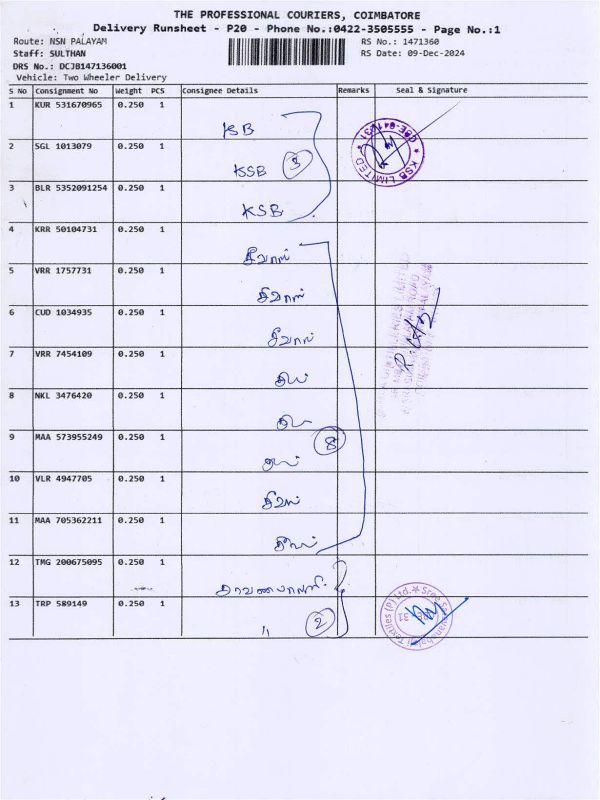 THE PROFESSIONAL COURIERS, COIMBATORE
Delivery Runsheet - P20 - Phone No.:0422-3505555 - Page No.:1
Route: NSN PALAYAM
RS No.: 1471360
Staff: SULTHAN
RS Date: 09-Dec-2024
DRS No.: DCJB147136001
Vehicle: Two Wheeler Delivery
S No Consignment No Weight PCS Consignee Details Remarks Seal & Signature
1 KUR 531670965 0.250 1 KSB
2 SGL 1013079 0.250 1 KSB 3
3 BLR 5352091254 0.250 1 KSB
KSB LIMITED ★ CBE-641 031 ★
4 KRR 50104731 0.250 1
5 VRR 1757731 0.250 1
6 CUD 1034935 0.250 1
7 VRR 7454109 0.250 1
8 NKL 3476420 0.250 1
9 MAA 573955249 0.250 1 8
10 VLR 4947705 0.250 1
11 MAA 705362211 0.250 1
12 TMG 200675095 0.250 1
13 TRP 589149 0.250 1 " 2